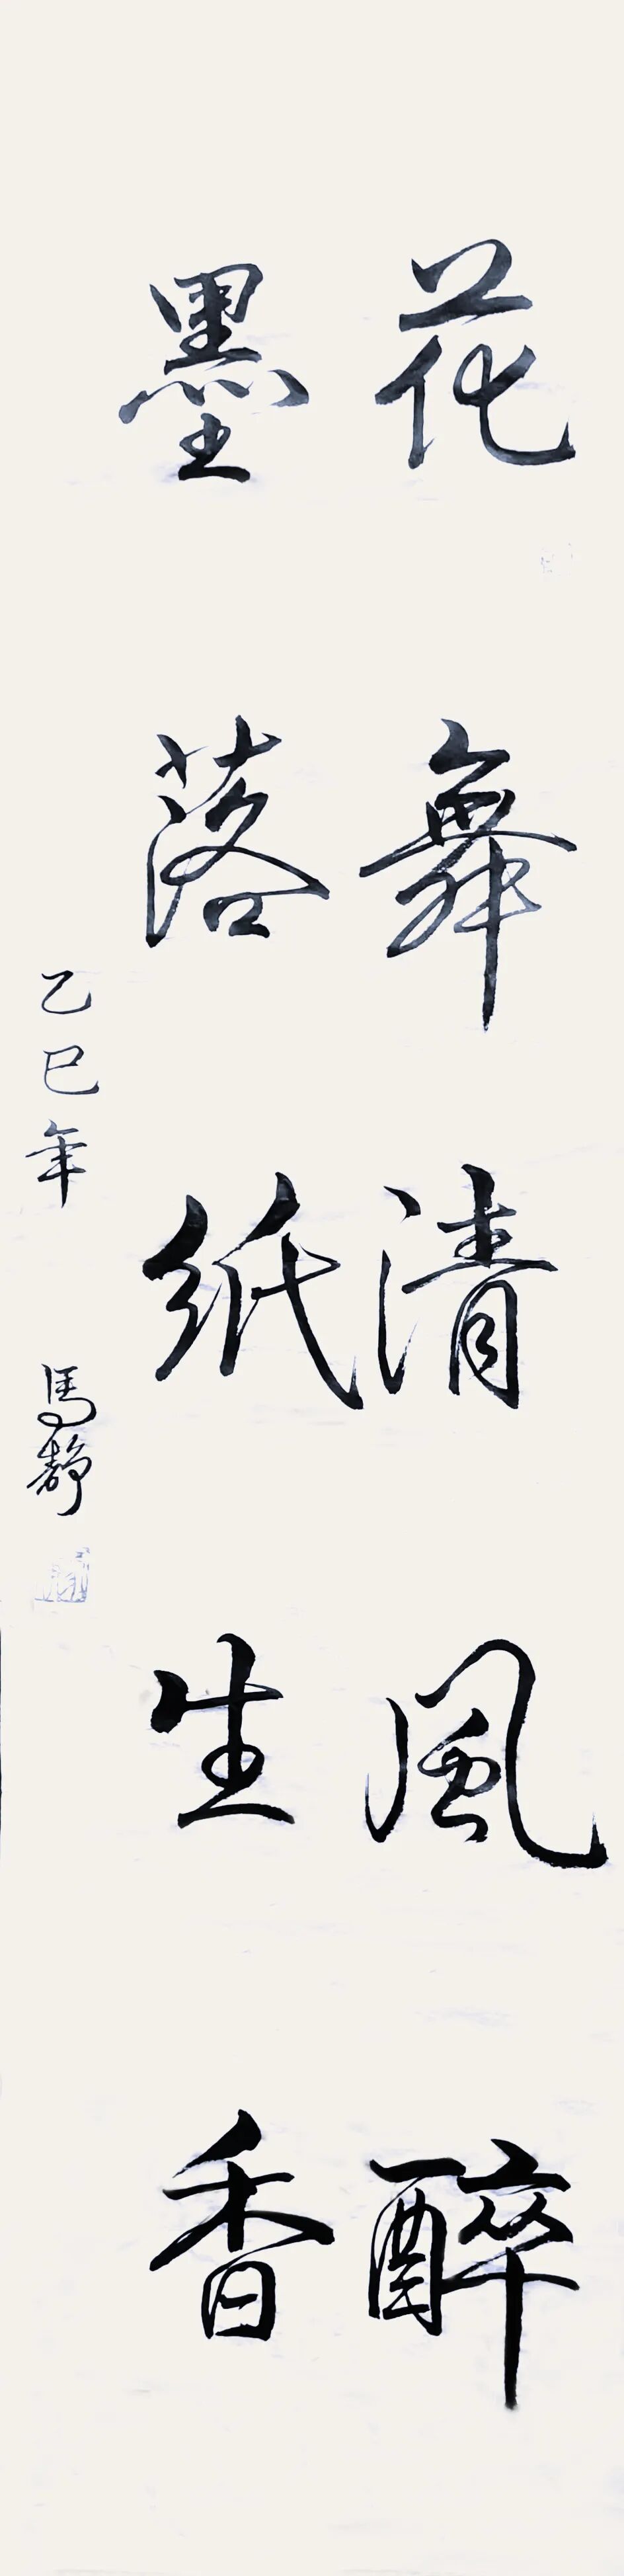 花舞清風醉
墨落纸生香
乙巳年 馬静